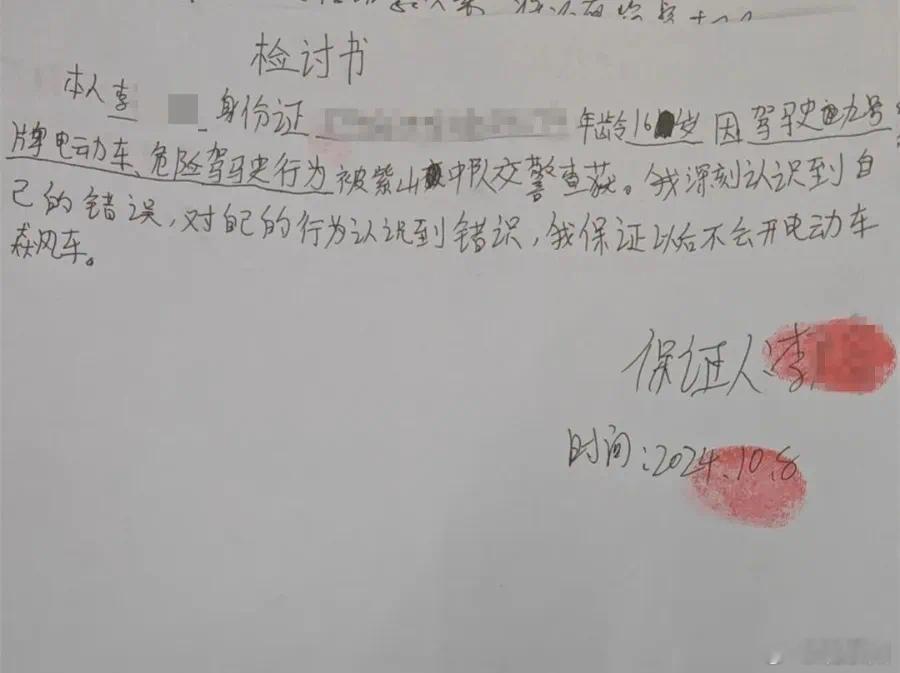 检讨书
本人李 身份证 年龄16岁 因驾驶电动号
牌电动车、危险驾驶行为被紫山中队交警查获。我深刻认识到自
己的错误,对自己的行为认识到错误,我保证以后不会开电动车
飙车。
保证人:李
时间:2024.10.8